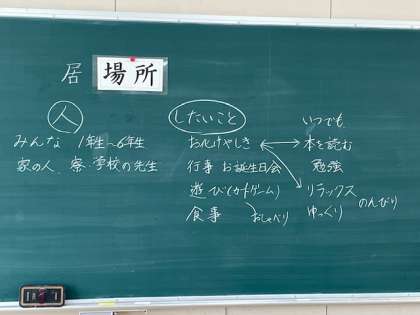 居場所
人
みんな 1年生～6年生
家の人、寮・学校の先生
したいこと
おばけやしき
行事 お誕生日会
遊び(カードゲーム)
食事
おしゃべり
いつでも
本を読む
勉強
リラックス
ゆっくり
のんびり